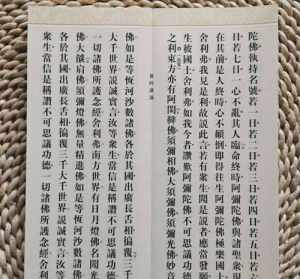 陀佛執持名號若一日若二日若三日若四日若五日若六
日若七日一心不亂其人臨命終時阿彌陀佛與諸聖眾
在其前是人終時心不顛倒即得往生阿彌陀佛極樂國土
舍利弗我見是利故說此言若有眾生聞是說者應當發願
生彼國土舍利弗如我今者讚歎阿彌陀佛不可思議功德
之利東方亦有阿閦鞞佛須彌相佛大須彌佛須彌光佛妙音
佛如是等恆河沙數諸佛各於其國出廣長舌相徧覆三千
大千世界說誠實言汝等眾生當信是稱讚不可思議功德
一切諸佛所護念經舍利弗南方世界有日月燈佛名聞光
佛大燄肩佛須彌燈佛無量精進佛如是等恆河沙數諸佛
各於其國出廣長舌相徧覆三千大千世界說誠實言汝等
眾生當信是稱讚不可思議功德一切諸佛所護念經